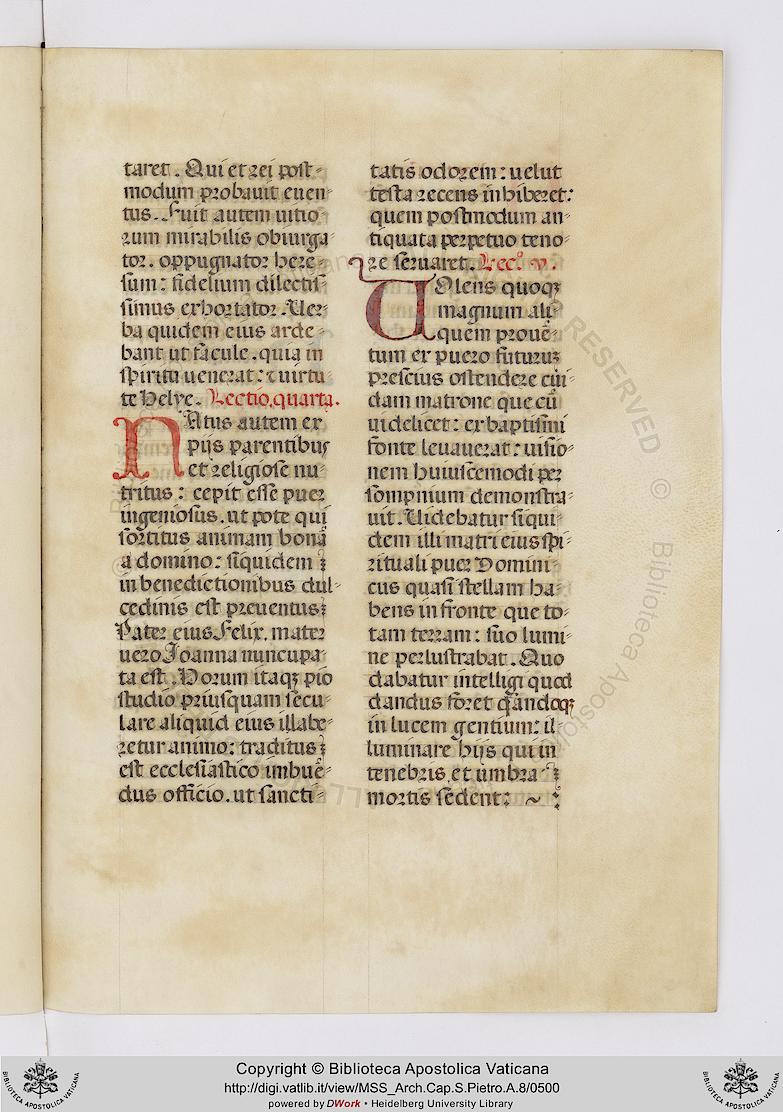 taret. Qui et rei post-
modum probauit euen-
tus. Fuit autem uitio-
rum mirabilis obiurga-
tor. oppugnator here-
sum: fidelium dilectis-
simus exhortator. Uer-
ba quidem eius arde-
bant ut facule. quia in
spiritu uenerat: ⁊ uirtu-
te helye. Lectio. quarta.
NAtus autem ex
pijs parentibus
et religiose nu-
tritus: cepit esse puer
ingeniosus. ut pote qui
sortitus animam bonā
a domino: siquidem
in benedictionibus dul-
cedinis est preuentus:
Pater eius Felix. mater
uero Joanna nuncupa-
ta est. Horum itaqꝫ pio
studio priusquam secu-
lare aliquid eius illabe-
retur animo: traditus
est ecclesiastico imbuē-
dus officio. ut sancti-
tatis odorem: uelut
testa recens inhiberet:
quem postmodum an-
tiquata perpetuo teno-
re seruaret. Lecº. v.
UOlens quoqꝫ
magnum ali-
quem prouē-
tum ex puero futuruꝫ
prescius ostendere cui-
dam matrone que eū
uidelicet: ex baptismi
fonte leuauerat: uisio-
nem huiuscemodi per
sompnium demonstra-
uit. Uidebatur siqui-
dem illi matri eius spi-
rituali puer Domini-
cus quasi stellam ha-
bens in fronte que to-
tam terram: suo lumi-
ne perlustrabat. Quo
dabatur intelligi quod
dandus foret q̄andoqꝫ
in lucem gentium: il-
luminare hijs qui in
tenebris et umbra
mortis sedent: ~
RESERVED © Biblioteca Aposto
BIBLIOTECA APOSTOLICA VATICANA
Copyright © Biblioteca Apostolica Vaticana
http://digi.vatlib.it/view/MSS_Arch.Cap.S.Pietro.A.8/0500
powered by DWork • Heidelberg University Library
BIBLIOTECA APOSTOLICA VATICANA